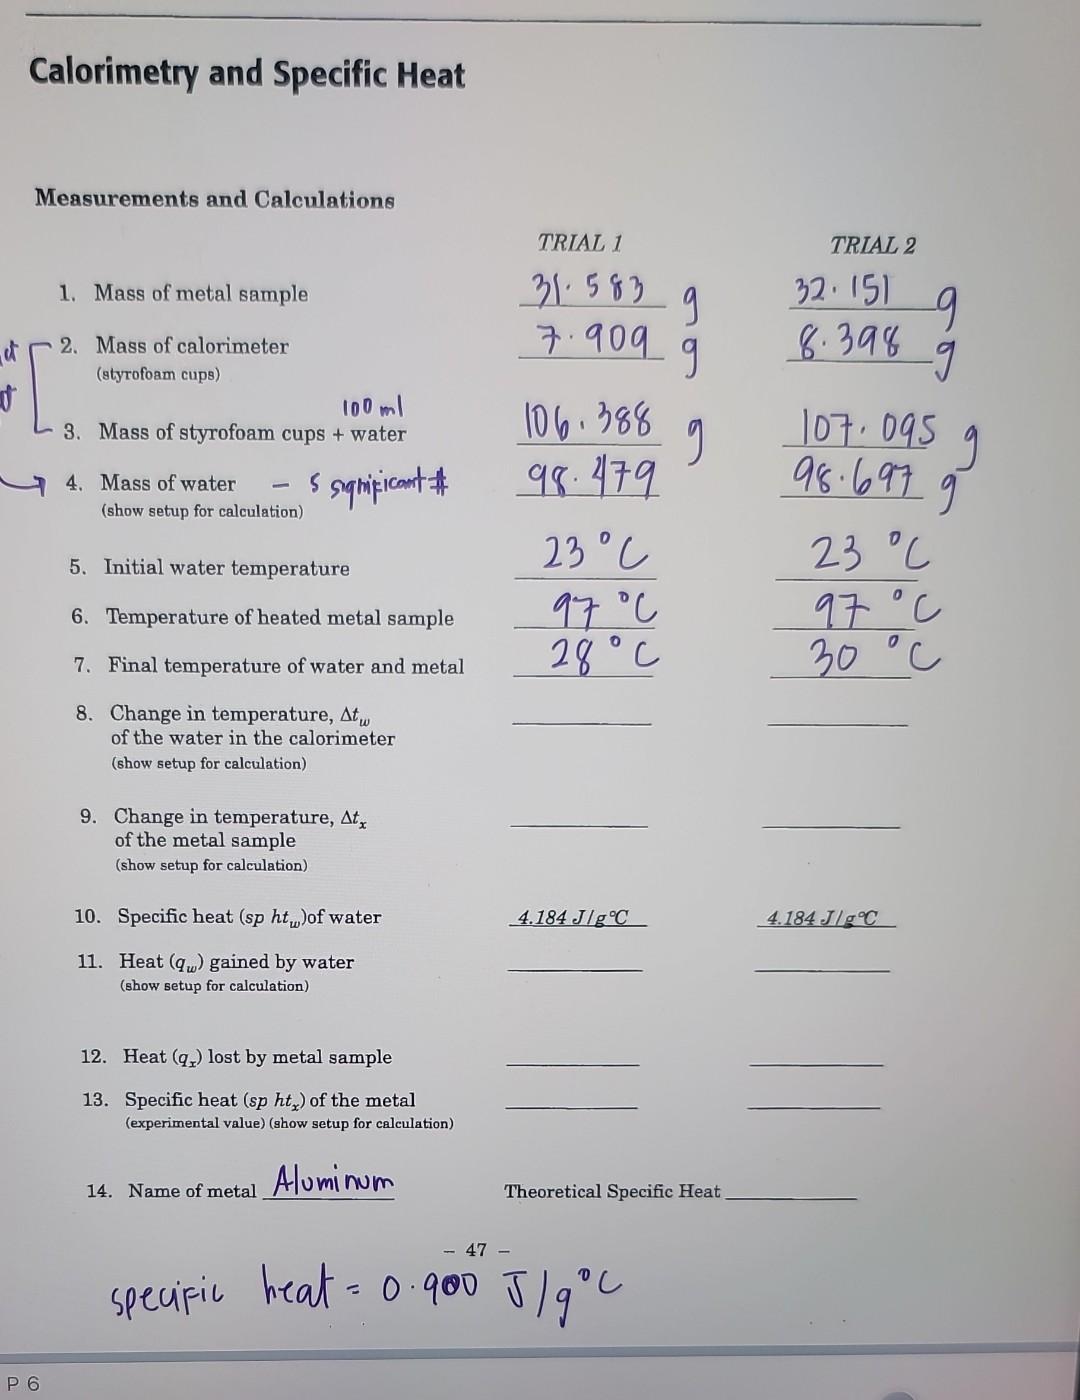 Calorimetry and Specific Heat
Measurements and Calculations
TRIAL 1 TRIAL 2
1. Mass of metal sample 31.583 g 32.151 g
2. Mass of calorimeter 7.909 g 8.398 g
(styrofoam cups)
100 ml
3. Mass of styrofoam cups + water 106.388 g 107.095 g
4. Mass of water – 5 significant # 98.479 98.697 g
(show setup for calculation)
5. Initial water temperature 23 °C 23 °C
6. Temperature of heated metal sample 97 °C 97 °C
7. Final temperature of water and metal 28 °C 30 °C
8. Change in temperature, Δt_w
of the water in the calorimeter
(show setup for calculation)
9. Change in temperature, Δt_x
of the metal sample
(show setup for calculation)
10. Specific heat (sp ht_w)of water 4.184 J/g°C 4.184 J/g°C
11. Heat (q_w) gained by water
(show setup for calculation)
12. Heat (q_x) lost by metal sample
13. Specific heat (sp ht_x) of the metal
(experimental value) (show setup for calculation)
14. Name of metal Aluminum Theoretical Specific Heat
– 47 –
specific heat = 0.900 J/g°C
P 6